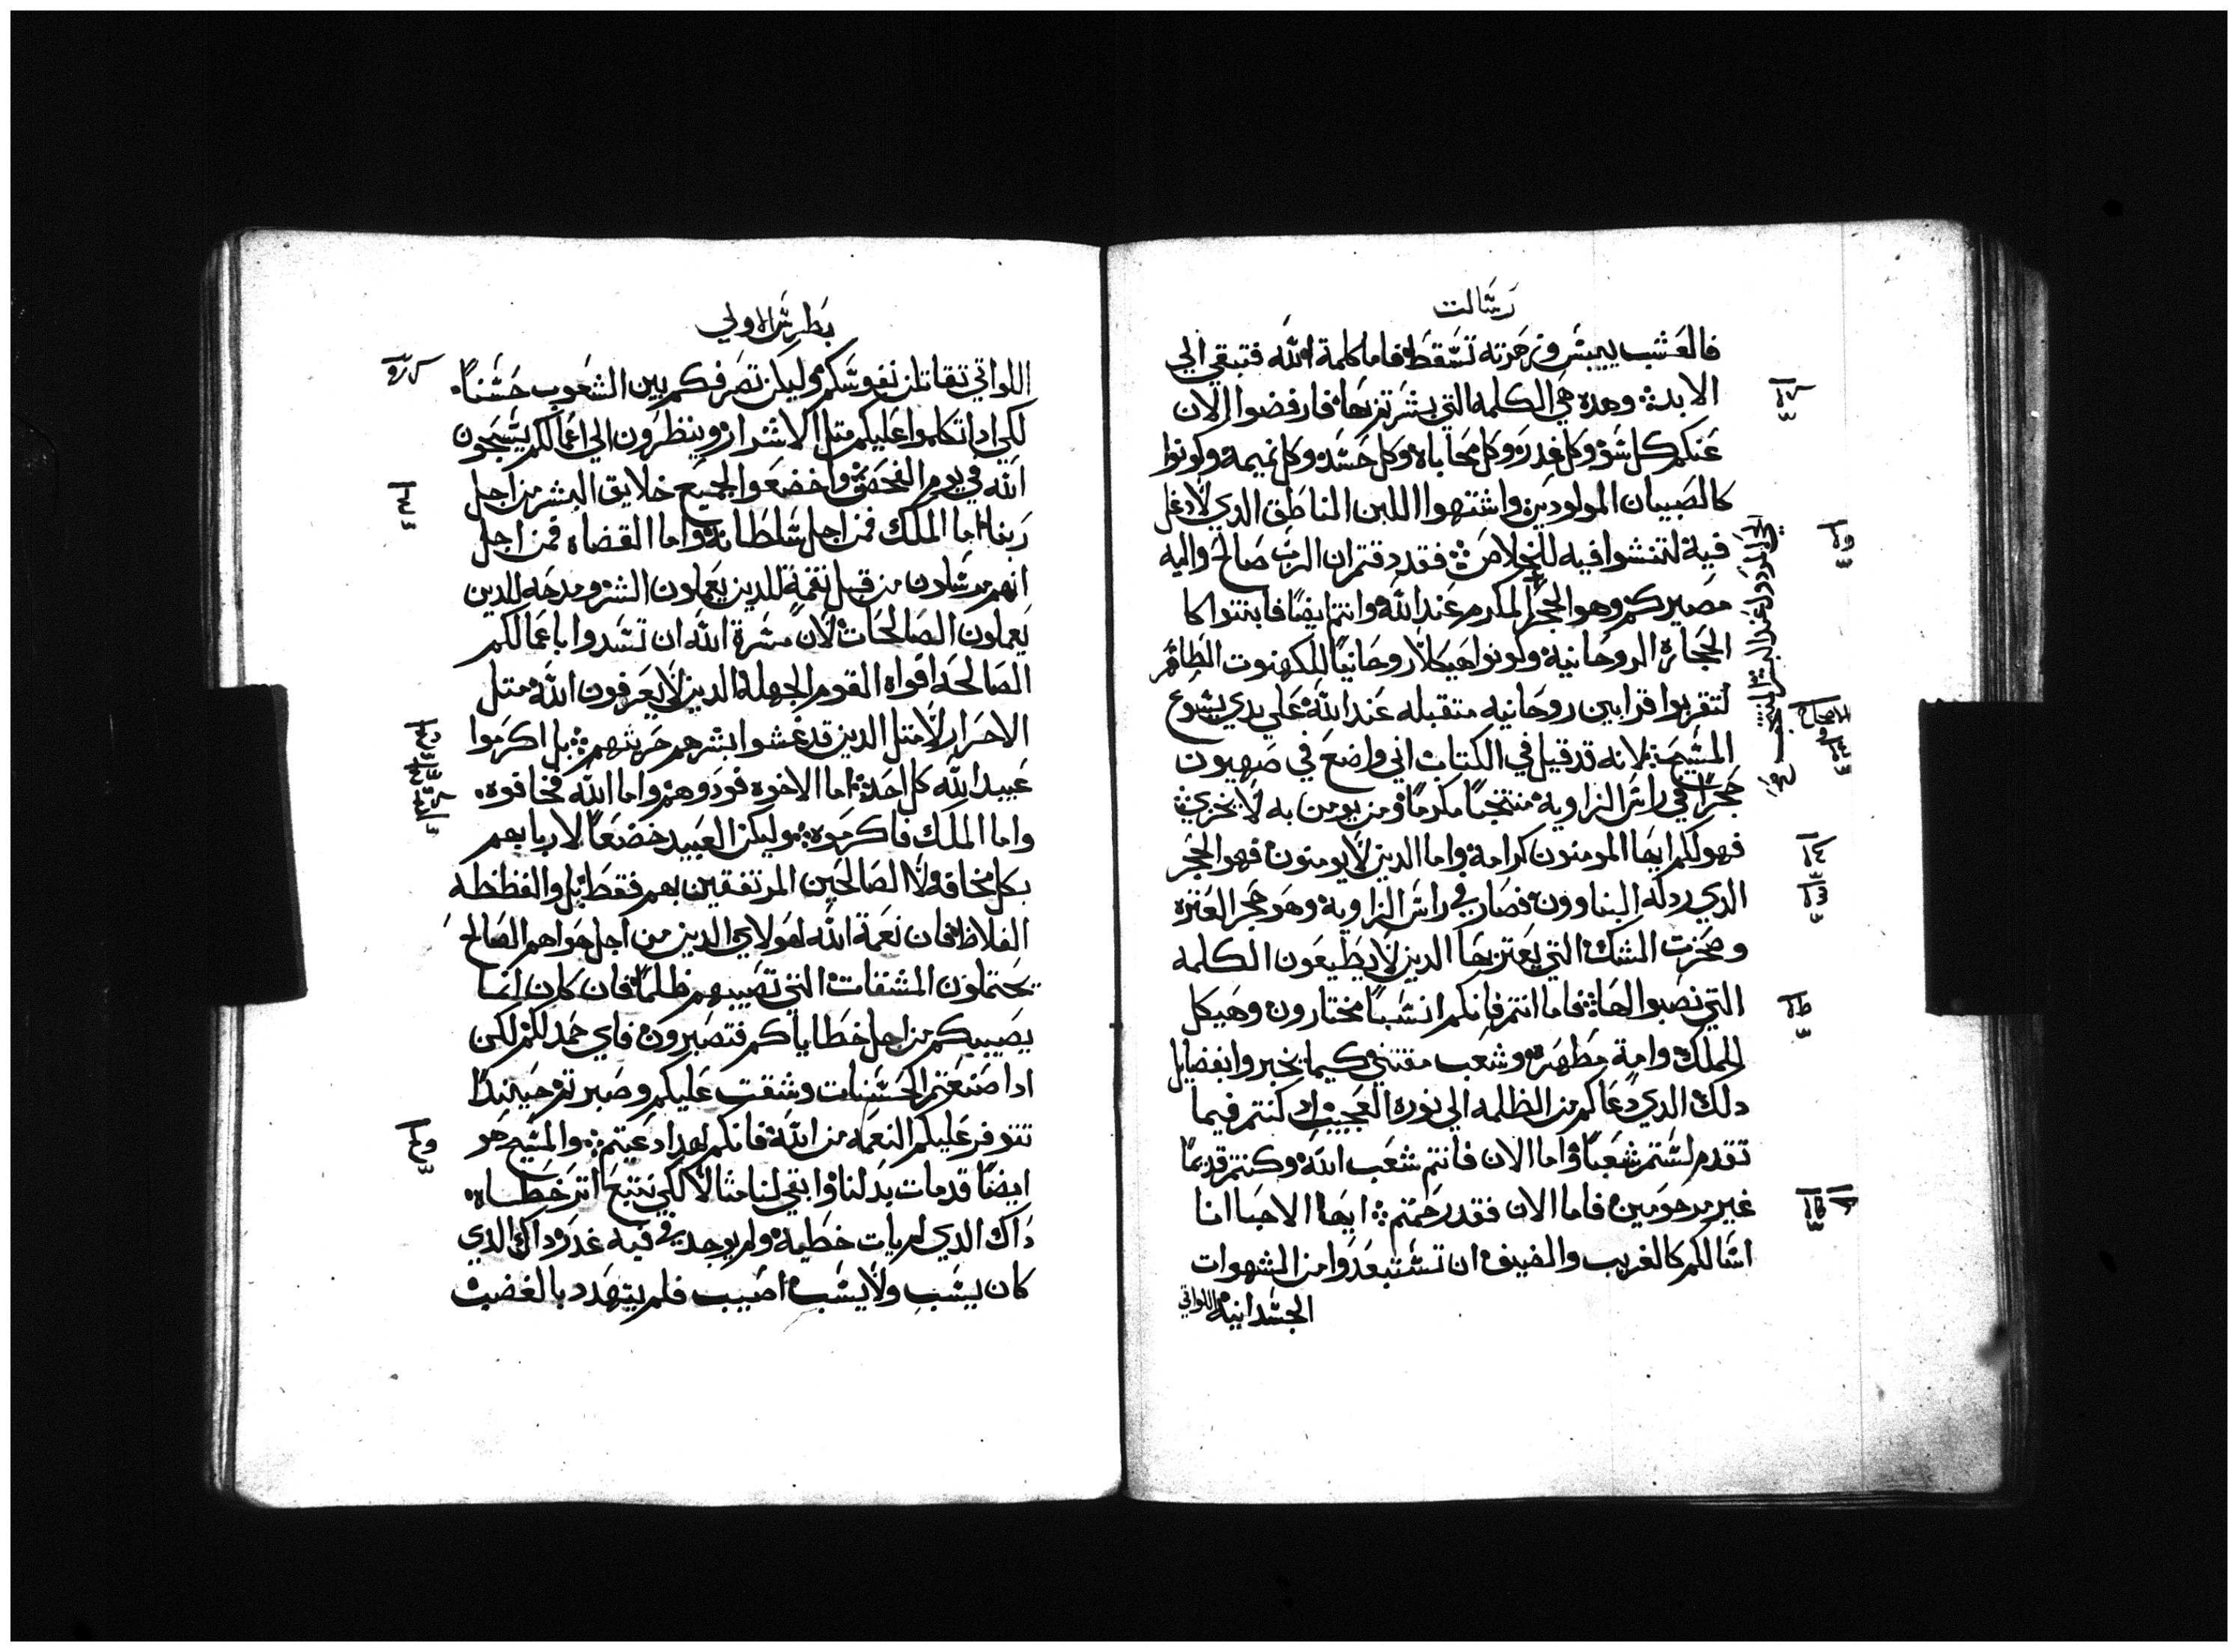 رسالت
فالعشب ييبس وزهرته تسقط فاما كلمة الله فتبقي الي
الابد وهده هي الكلمه التي بشرتم بها فارفضوا الان
عنكم كل شر وكل غدر وكل محاباه وكل حسد وكل نميمه وكونوا
كالصبيان المولودين واشتهوا اللبن الناطق الدي لا دغل
فية لتنشوا فيه للخلاص فقد دقتم ان الرب صالح واليه
مصيركم وهو الحجر المكرم عند الله وانتم ايضا فابنتوا كا
الحجارة الروحانية وكونوا هيكلا روحانيا للكهنوت الطاهر
لتقربوا قرابين روحانيه متقبله عند الله علي يدي يسوع
المسيح لانه قد قيل في الكتاب اني واضع في صهيون
حجرا في راس الزاوية منتجبا مكرما ومن يومن به لا يخزي
فهو لكم ايها المومنون كرامة واما الدين لا يومنون فهو الحجر
الدي ردله البناوون فصار في راس الزاوية وهو حجر العتره
وصخرت الشك التي يعتر بها الدين لا يطيعون الكلمه
التي نصبوا لها فاما انتم فانكم انسبا مختارون وهيكل
للملك وامة مطهرة وشعب مقتني كيما تخبروا بفضايل
دلك الدي دعاكم من الظلمه الي نوره العجيب كنتم فيما
تقدم لستم شعبا واما الان فانتم شعب الله وكنتم قديما
غير مرحومين فاما الان فقد رحمتم ايها الاحبا انا
اسالكم كالغريب والضيف ان تستبعدوا من الشهوات
الجسدانية اللواتي
بطرس الاولي
اللواتي تقاتلن نفوسكم وليكن تصرفكم بين الشعوب حسنا
لكي ادا تكلموا عليكم متل الاشرار وينظرون الي اعمالكم يسبحون
الله في يوم الفحص واخضعوا لجميع خلايق البشر من اجل
ربنا اما الملك فمن اجل سلطانه واما القضاه فمن اجل
انهم مرسلون من قبل نقمة للدين يعملون الشر ومدحه للدين
يعملون الصالحات لان مسرة الله ان تسدوا باعمالكم
الصالحة افواه القوم الجهلة الدين لا يعرفون الله متل
الاحرار لا متل الدين قد غشوا بشرهم حريتهم بل اكرموا
عبيد الله كل احد اما الاخوه فودوهم واما الله فخافوه
واما الملك فاكرموه وليكن العبيد خضعا لاربابهم
بكل مخافه ولا الصالحين المرتفقين بهم فقط بل والفظظه
الغلاظ فان نعمة الله لهولاي الدين من اجل هواهم الصالح
يحتملون المشقات التي تصيبهم ظلما فان كان اسا
يصيبكم من اجل خطاياكم فتصبرون فاي حمد لكم لكن
ادا صنعتم الحسنات وشقت عليكم وصبرتم حينيدا
تتوفر عليكم النعمه من الله فانكم لهدا دعيتم والمسيح هو
ايضا قد مات بدلنا وابقي لنا متالا لكي نتبع اتر خطاه
داك الدي لم يات خطية ولم يوجد في فيه غدر وداك الدي
كان يسب ولا يسب اصيب فلم يتهدد بالغضب